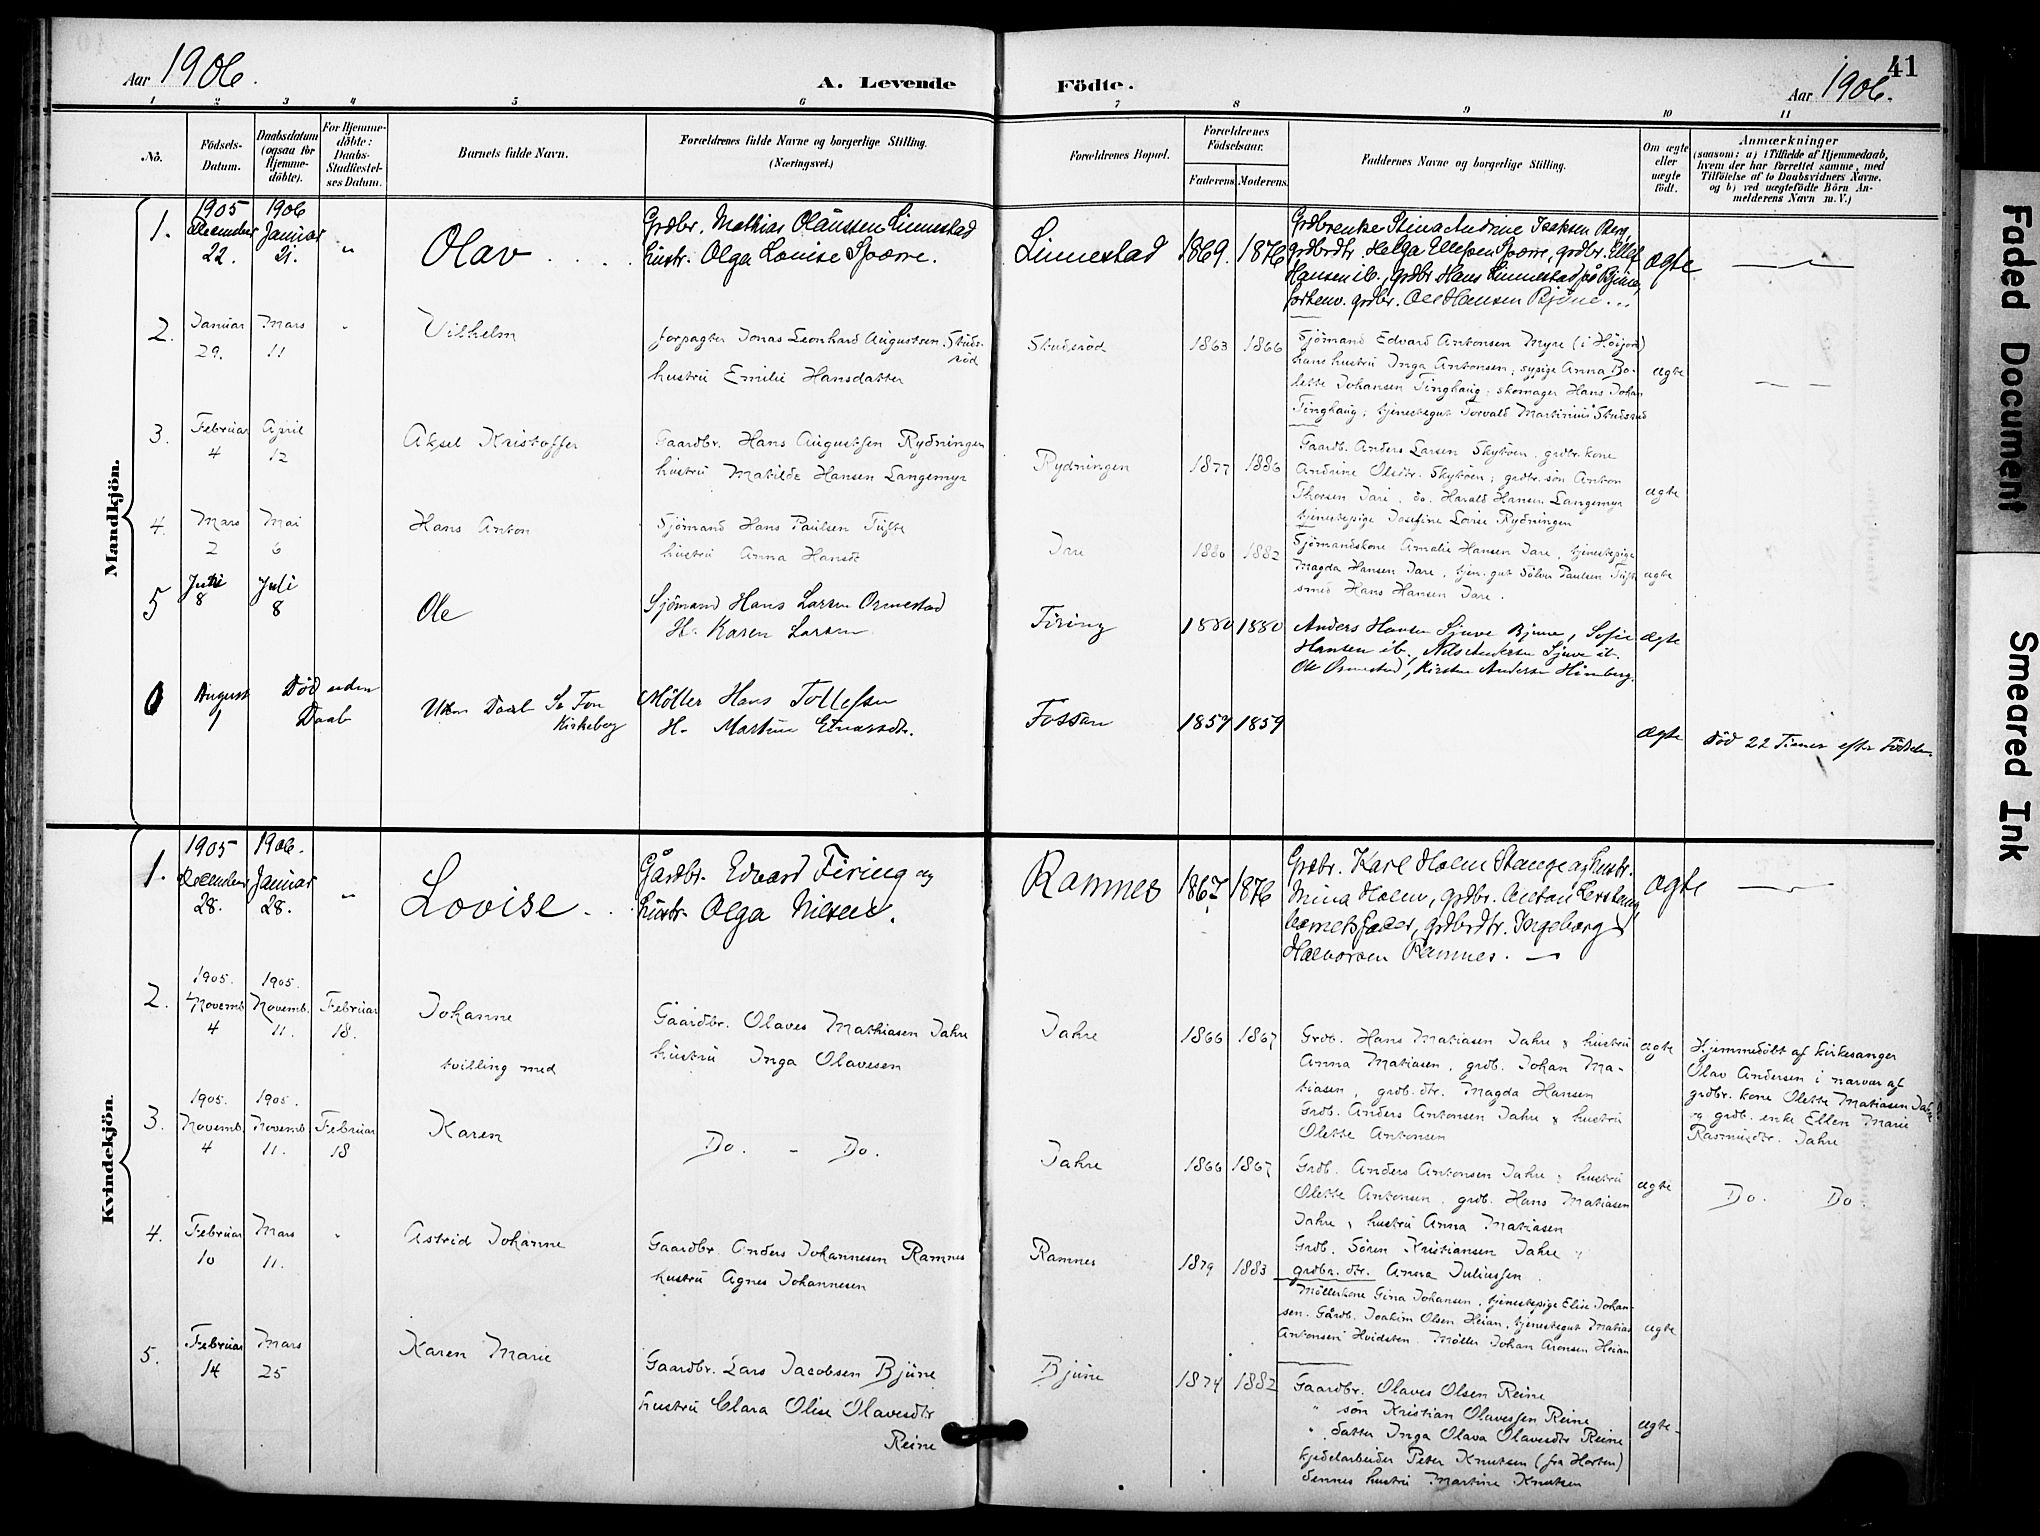 Aar 1906.
A. Levende
Födte.
Aar 1906.
41
1 2 3 4 5 6 7 8 9 10 11
No.
Födsels-
Datum.
Daabsdatum
(ogsaa for
Hjemme-
döbte).
For Hjemme-
döbte:
Daabs-
Stadfæstel-
ses Datum.
Barnets fulde Navn.
Forældrenes fulde Navne og borgerlige Stilling.
(Næringsvei.)
Forældrenes Bopæl.
Forældrenes
Födselsaar.
Faderens.
Moderens.
Faddernes Navne og borgerlige Stilling.
Om ægte
eller
uægte
født.
Anmærkninger
(saasom: a) i Tilfælde af Hjemmedaab,
hvem der har forrettet samme, med
Tilföielse af to Daabsvidners Navne.
og b) ved uægtefödte Börn An-
melderens Navn m. V.)
Mandkjön.
1.
1905
December
22.
1906
Januar
21.
"
Olav
Grdbr. Mathias Olaussen Linnestad
hustr. Olga Lovise Sparre.
Linnestad
1869.
1876
Grdbrenke Stina Andrine Isaksen Berg,
grdbrdtr. Helga Ellefsen Sparre, grdbr. Ellef
Hansen ib., grdbr. Hans Linnestad på Bjune,
forhenv. grdbr. Ole Hansen Bjune.
ægte
2.
Januar
29.
Mars
11
Vilhelm
forpagter Jonas Leonhard Augustsen Skuds-
röd
hustru Emilie Hansdatter
Skudsröd
1863
1866
Sjömand Edvard Antonsen Myre (i Höijord)
hans hustru Inga Antonsen; sypige Anna Bo-
lette Johansen Tinghaug; skomager Hans Johan
Tinghaug; tjenestegut Torvald Martinius Skudsröd
ægte
3.
Februar
4
April
12
Aksel Kristoffer
Gaardbr. Hans Augustsen Rydningen
hustru Matilde Hansen Langemyr
Rydningen
1877
1886
Gaardb. Anders Larsen Skytöen, grdbr. kone
Andrine Olsdtr. Skytöen; grdbr. sön Anton
Thorsen Jare, do. Harald Hansen Langemyr
tjenestepige Josefine Lovise Rydningen
ægte
4.
Mars
2
Mai
6
Hans Anton
Sjömand Hans Paulsen Tufte
hustru Anna Hansdr
Jare
1880
1882
Sjömandskone Amalie Hansen Jare, tjenestepige
Magda Hansen Jare, tjen. gut Sölver Paulsen Tufte
smed Hans Hansen Jare.
ægte
5
8
Juli
8
Ole
Sjömand Hans Larsen Ormestad
H. Karen Larsen
Firing
1880
1880
Anders Hansen Sjuve Bjune, Sofie
Hansen ib., Nils Andersen Sjuve ib.
Ole Ormestad, Kirsten Andersen Himberg.
ægte
August
1
Död uden
Daab
Uten Daab
Kirkeberg
Møller Hans Tollefsen
H. Martine Einarsdtr.
Fossan
1857
1859
ægte
Död 22 Timer efter Födselen.
Kvindekjön.
1.
1905
December
28.
1906.
Januar
28.
"
Lovise
Gårdbr. Edvard Firing og
hustr. Olga Nilsen.
Ramnes
1867
1876
Grdbr. Karl Holm Stange og hustr.
Mina Holm, grdbr.
barnets fader, grdbrdtr. Ingeborg
Halvorsen Ramnes.
ægte
2.
1905.
Novemb.
4
1905.
Novemb.
11.
Februar
18.
Johanne
tvilling med
Gaardbr. Olaves Mathiasen Jahre
hustru Inga Olavesen
Jahre
1866
1867
Grdb. Hans Matiasen Jahre & hustru
Anna Matiasen, grdb. Johan Ma-
tiasen, grdb. dtr. Magda Hansen
Grdb. Anders Antonsen Jahre & hustru
Olette Antonsen
ægte
Hjemmedöbt af kirkesanger
Olav Andersen i nærvær af
grdbr. kone Olette Matiasen Jahre
og grdb. enke Ellen Marie
Rasmusdtr. Jahre
3.
1905.
Novemb.
4
1905.
Novemb.
11.
Februar
18
Karen
Do. - Do.
Jahre
1866
1867
Grdb. Anders Antonsen Jahre & hustru
Olette Antonsen, grdb. Hans Matiasen
Jahre & hustru Anna Matiasen
Grdb. Sören Kristiansen Jahre &
grdbr. dtr. Anna Juliussen
ægte
Do. Do.
4.
Februar
10
Mars
11.
Astrid Johanne
Gaardbr. Anders Johannesen Ramnes
hustru Agnes Johannesen
Ramnes
1879
1883
Möllerkone Gina Johansen, tjenestepige Elise Johan-
sen. Gårdb. Joakim Olsen Heian, tjenestegut Matias
Antonsen Hvidsten. Möller Johan Aronsen Heian
ægte
5.
Februar
14
Mars
25
Karen Marie
Gaardbr. Lars Jacobsen Bjüne
hustru Clara Olise Olavesdtr
Reine
Bjüne
1874
1882
Gaardbr. Olaves Olsen Reine
" sön Kristian Olavessen Reine
" datter Inga Olava Olavesdtr Reine
kjedelarbeider Peter Knutsen (fra Horten)
dennes hustru Martine Knutsen
ægte
Faded Document
Smeared Ink